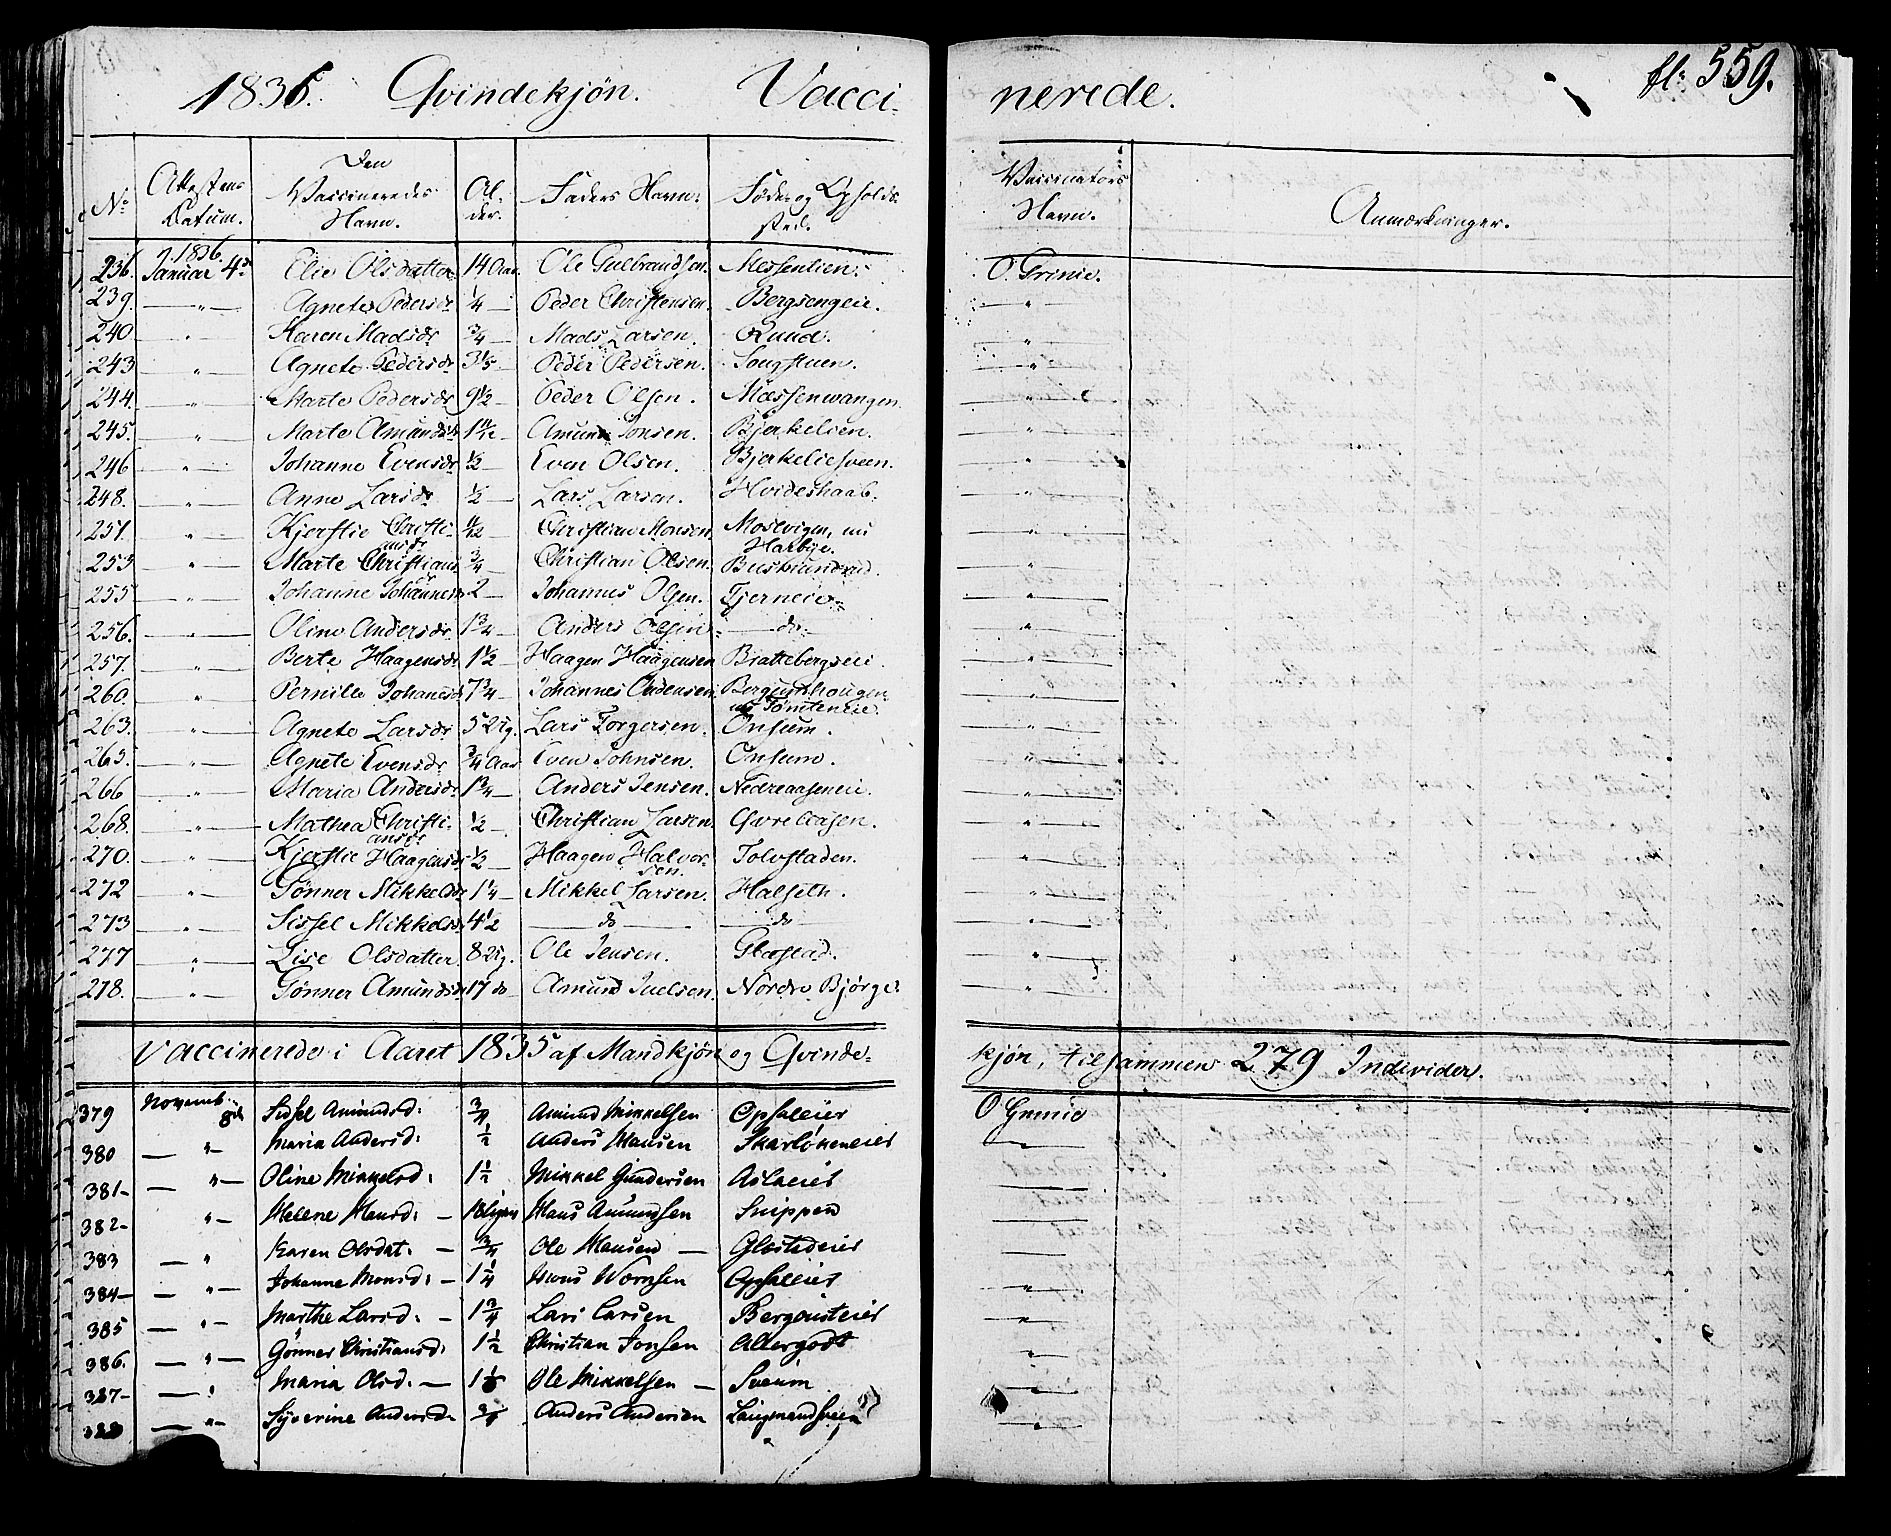 1836. Qvindekjön. Vacci- nerede. fl. 559.
No Attestens Datum. Den Vaccineredes Navn. Al- der. Faders Navn. Føde- og Opholds- sted. Vaccinators Navn. Anmærkninger.
236. 1836 Januar 4de Elie Olsdatter 14 Aar Ole Gulbrandsen. Messenlien. O. Grinie.
239. — " — Agnete Pedersdr ¼ — Peder Christensen. Bergsengeie. — " —
240. " Karen Madsdr ¾ — Mads Larsen. Ruud. — " —
243 — " — Agnete Pedersdr 3½ — Peder Pedersen. Songstuen. — " —
244. — " — Marte Pedersdr 9½ — Peder Olsen. Messenwangen. — " —
245. — " — Marte Amundsdr 1 11/12 — Amund Jonsen. Bjerkelien. — " —
246 — " — Johanne Evensdr ½ — Even Olsen. Bjerkeliesveen. — " —
248. — " — Anne Larsdr ½ — Lars Larsen. Hvideshaab. — " —
251. — " — Kjerstie Christi- ansdr 11/12 Christian Monsen Moslvigen, nu Harbye. — " —
253 — " — Marte Christians dr ¾ — Christian Olsen. Buskrundrud. — " —
255 — " — Johanne Johannesdr 2 — Johannes Olsen. Tjerneie. — " —
256. — " — Oline Andersdr 1¾ — Anders Olsen — do — — " —
257. — " — Berte Haagensdr 1½ — Haagen Haagensen Brattebergseie. — " —
260. — " — Pernille Johanesdr 7¾ — Johannes Endensen. Bergumhougen nu Tömteneie. — " —
263. — " — Agnete Larsdr 5 Ug. Lars Torgersen. Onsum. — " —
265. — " — Agnete Evensdr ¾ Aar Even Johnsen. Onsum. — " —
266 — " — Maria Andersdr 1¾ — Anders Jensen. Nedreaaseneie. — " —
268. — " — Mathea Christi- ansdr ½ — Christian Larsen. Øvre Aasen. — " —
270. — " — Kjerstie Haagensdr ½ — Haagen Halvor- sen. Tolvstaden. — " —
272 — " — Gönner Mikkelsdr 1¼ — Mikkel Larsen. Halseth. — " —
273 — " — Sissel Mikkelsdr 4½ — do — — do — — " —
277 — " — Lise Olsdatter 8 Ug. Ole Jensen. Glæstad. — " —
278. — " — Gönner Amundsdr 17 do Amund Juelsen. Nordre Bjørge. — " —
Vaccinerede i Aaret 1835 af Mandkjön og Qvinde- kjön, tilsammen 279 Individer.
379 Novemb. 8de Sissel Amundsd: ¾ Amund Mikkelsen Opsaleier O Grinie
380 — " — Maria Andersd: ½ Anders Hansen Skarlökeneier — " —
381 — " — Oline Mikkelsd: 1½ Mikkel Gundersen Aslaeier
382 — " — Helene Hansd: — 18 Uger Hans Amundsen Snippen
383 — " Karen Olsdat: — ¾ Ole Hansen — Glæstadeier
384 — " — Johanne Monsd: — 1¼ Mons Wornsen Opsaleier — " —
385 — " — Marthe Larsd: — 1¾ Lars Larsen Bergunseier — " —
386. — " — Gönner Christiansd: 1½ Christian Jonsen Allergodt — " —
387 — " Maria Olsd. — Ole Mikkelsen — Sveum — " —
388 — " — Syverine Andersd. ¾ Anders Andersen Langmandsveen — " —